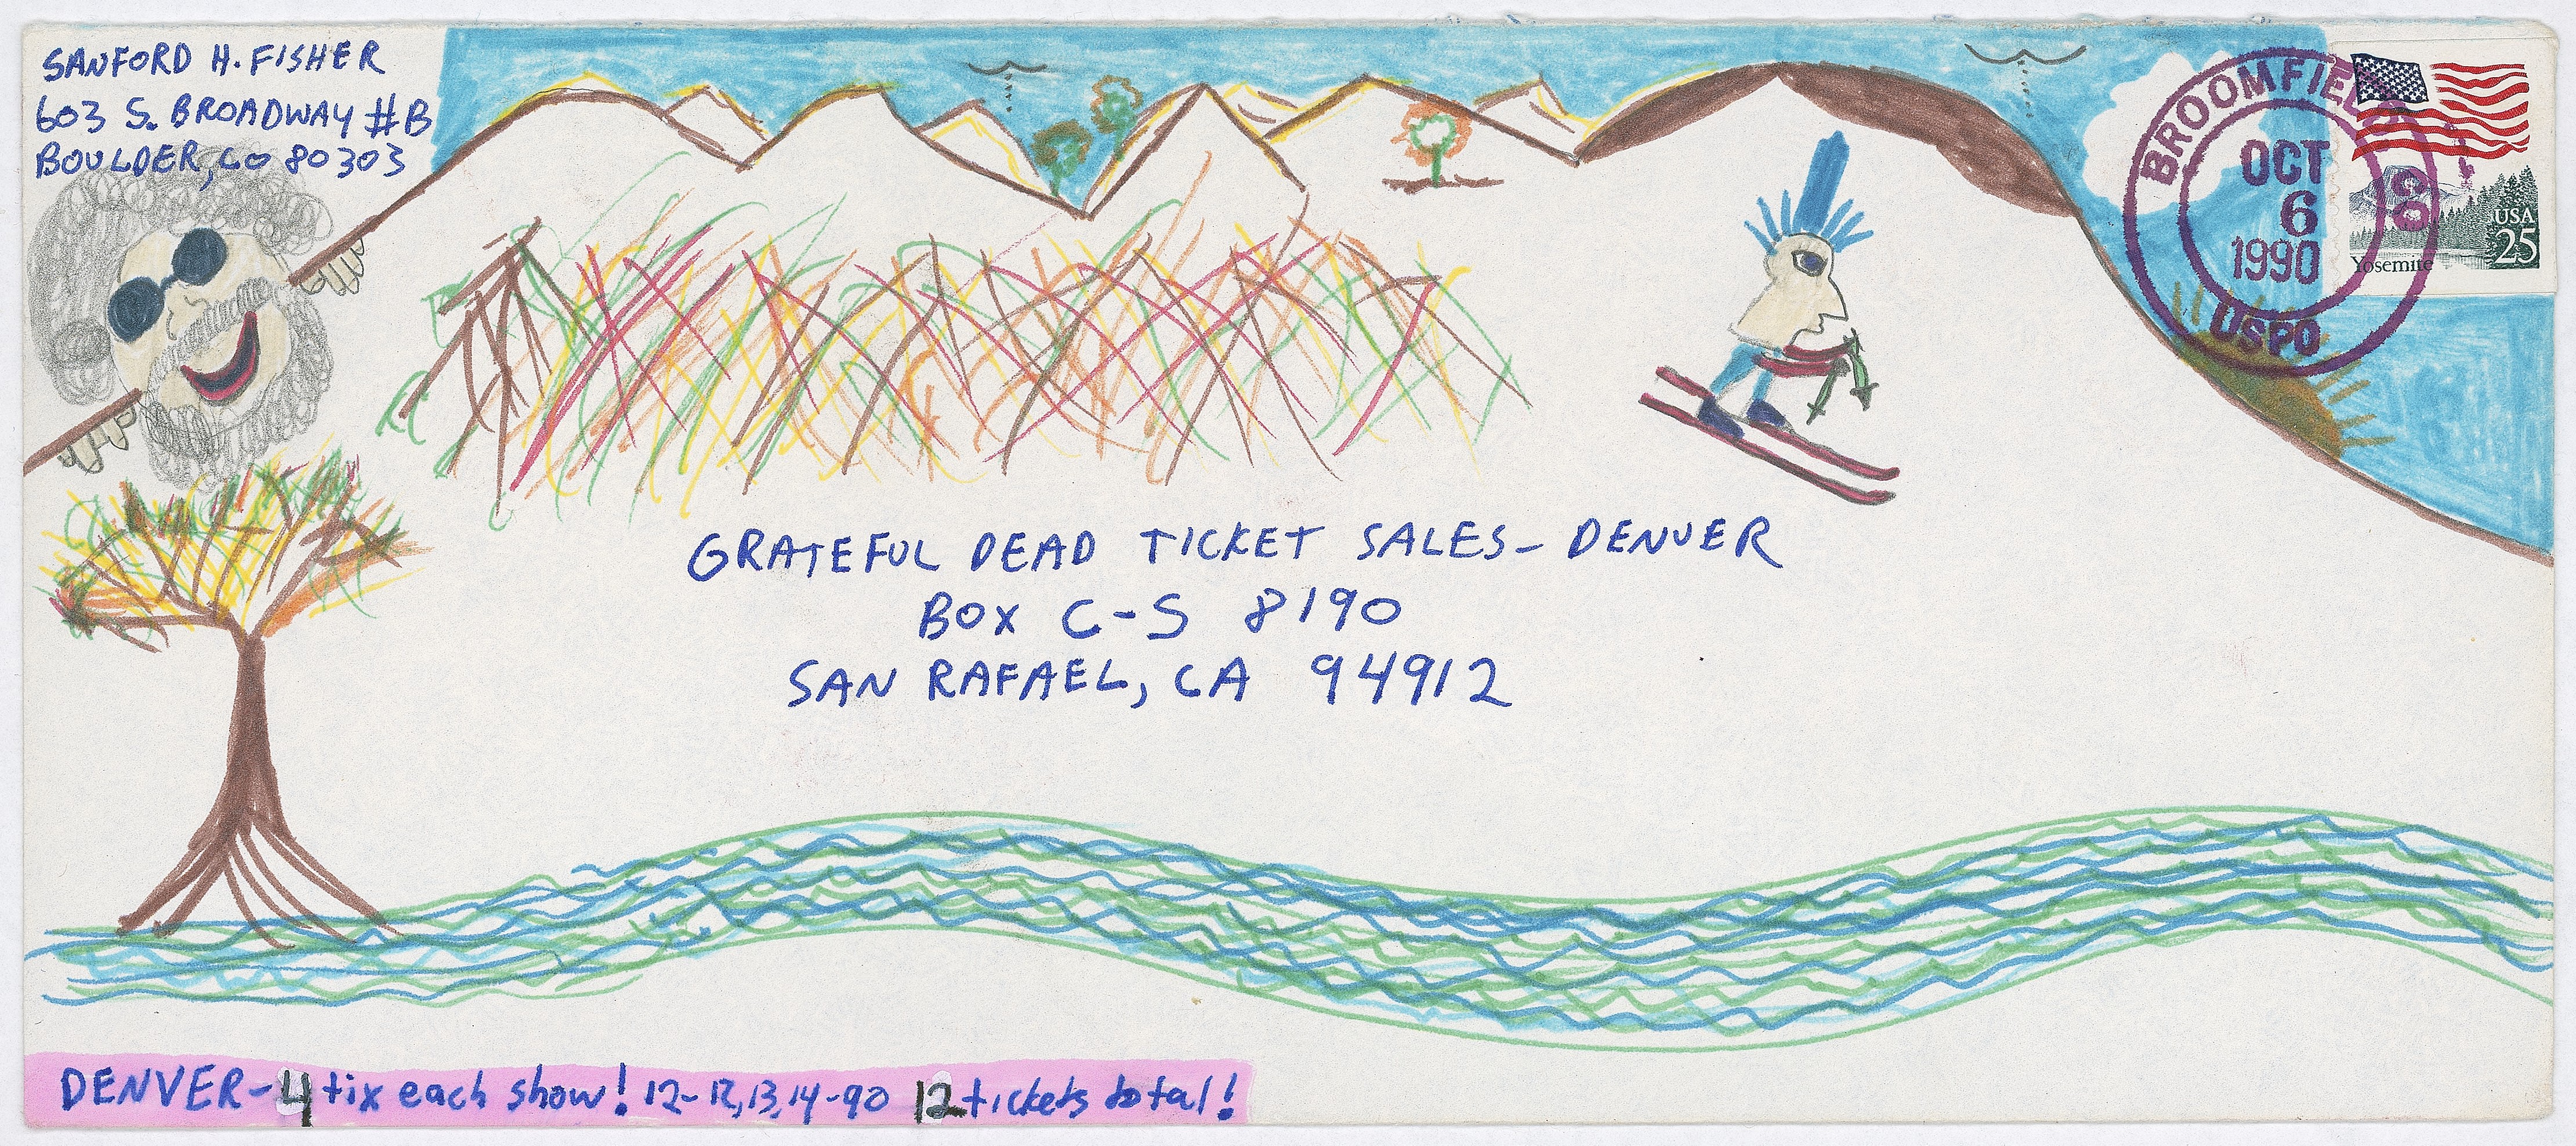 SANFORD H. FISHER
603 S. BROADWAY #B
BOULDER, CO 80303
BROOMFIELD
OCT
6
1990
USPO
CO
USA
25
Yosemite
GRATEFUL DEAD TICKET SALES - DENVER
BOX C-S 8190
SAN RAFAEL, CA 94912
DENVER - 4 tix each show! 12-12,13,14-90 12 tickets total!